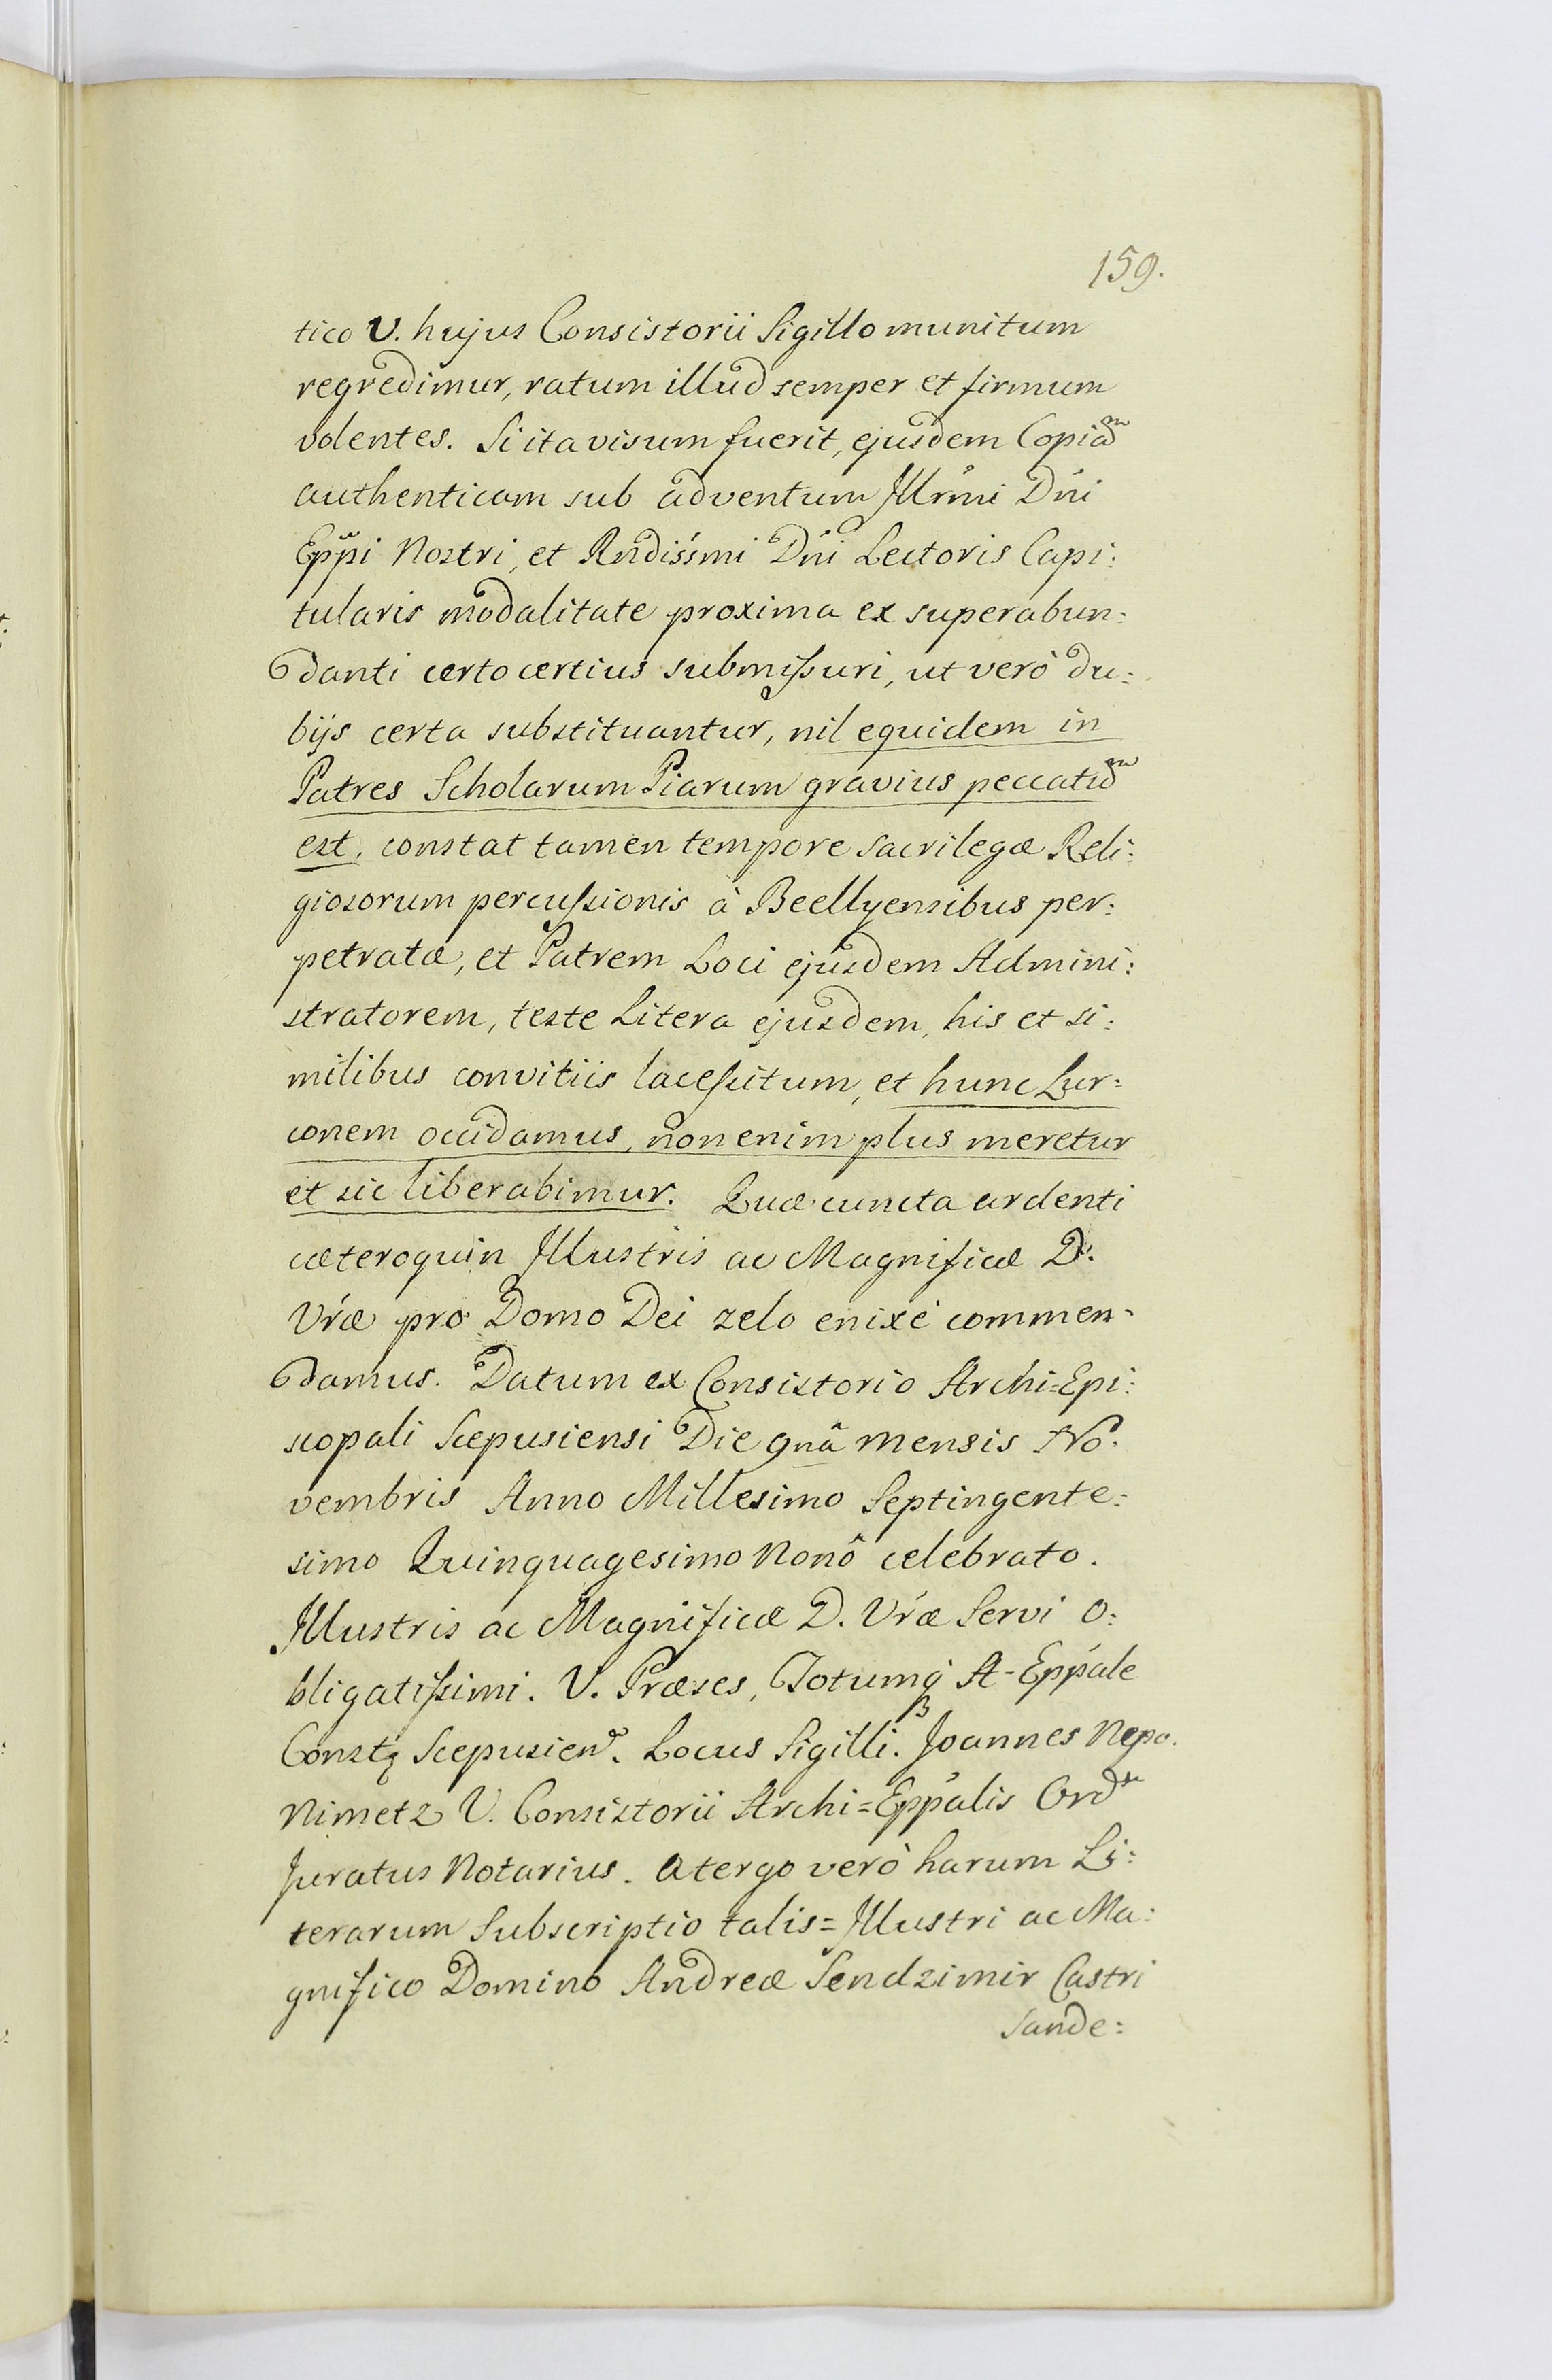 159.
tico V. hujus Consistorii Sigillo munitum
regredimur, ratum illud semper et firmum
volentes. Si ita visum fuerit, ejusdem Copiam
authenticam sub adventum Illrm̃i Dñi
Epp̃i Nostri, et Rñdissm̃i Dñi Lectoris Capi:
tularis modalitate proxima ex superabun:
danti certo certius submissuri, ut verò du:
bijs certa substituantur, nil equidem in
Patres Scholarum Piarum gravius peccatum
est. constat tamen tempore sacrilegæ Reli:
giosorum percussionis à Beellyensibus per:
petratæ, et Patrem Loci ejusdem Admini:
stratorem, teste Litera ejusdem, his et si:
milibus convitiis lacessitum, et hunc Lur:
conem occidamus, non enim plus meretur
et sic liberabimur. Quæ cuncta ardenti
cæteroquin Illustris ac Magnificæ D.
Vr̃æ pro Domo Dei zelo enixè commen:
damus. Datum ex Consistorio Archi=Epi:
scopali Scepusiensi Die 9nâ mensis No:
vembris Anno Millesimo Septingente:
simo Quinquagesimo Nonô celebrato.
Illustris ac Magnificæ D. Vr̃æ Servi o:
bligatissimi. V. Præses, Totumq́ A-Epp̃ale
Constꝫ Scepusien. Locus Sigilli. Joannes Nepo.
Nimetz V. Consistorii Archi=Epp̃alis Ord
Juratus Notarius. a tergo verò harum Li:
terarum Subscriptio talis= Illustri ac Ma:
gnifico Domino Andreæ Sendzimir Castri
Sande: